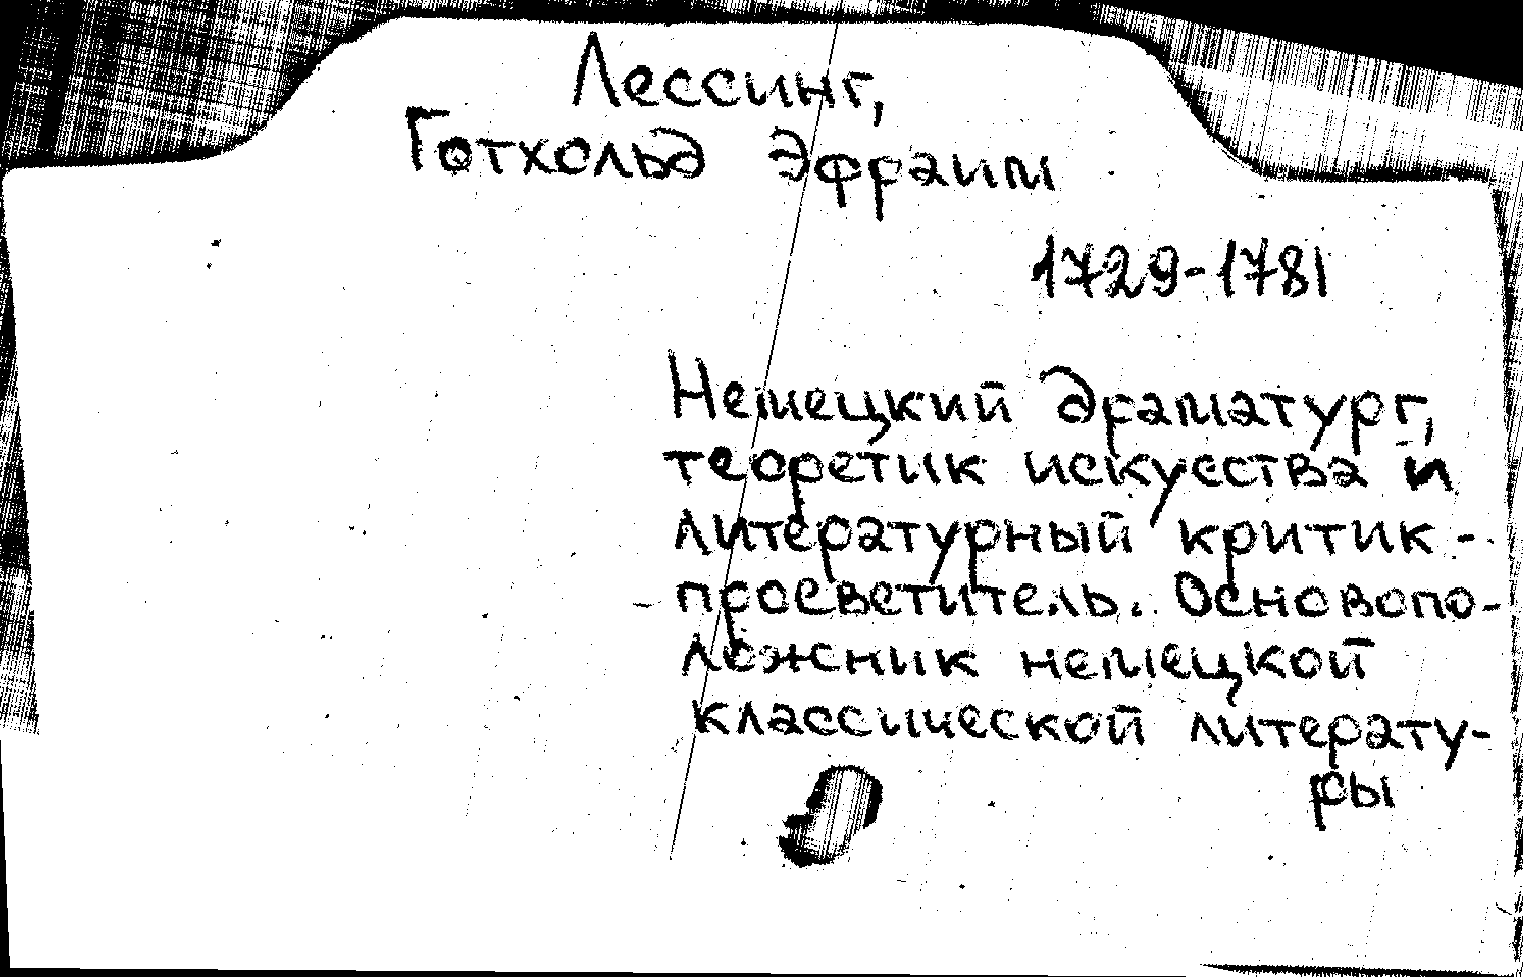 Лессинг,
Готхольд Эфраим
1729-1781
Немецкий драматург,
теоретик искусства и
литературный критик-
просветитель. Основопо-
ложник немецкой
классической литерату-
ры